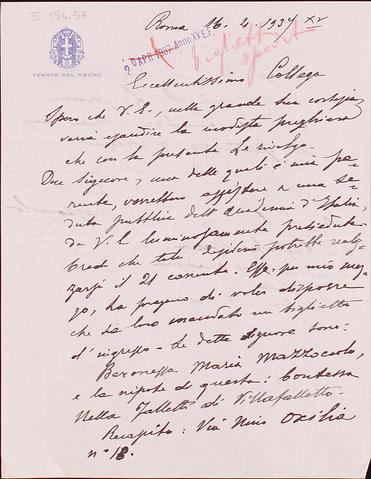 II. 156.57
Roma 16. 4. 1937 XV
20 APR 1937 Anno XV E.F.
biglietti
SENATO DEL REGNO
Eccellentissimo Collega
Spero che V. E., nella grande sua cortesia,
vorrà esaudire la modesta preghiera
che con la presente Le rivolgo.
Due Signore, una delle quali è mia pa-
rente, vorrebbero assistere a una se-
duta pubblica dell'Accademia d'Italia,
da V. E. luminosamente presieduta.
Credo che tale desiderio potrebbe realiz-
zarsi il 21 corrente. Esse, per mio mez-
zo, La pregano di voler disporre
che sia loro mandato un biglietto
d'ingresso. Le dette signore sono:
Baronessa Maria Mazzoccolo,
e la nipote di questa: Contessa
Nella Falletti di Villafalletto.
Recapito: Via Nino Oxilia
n° 18.